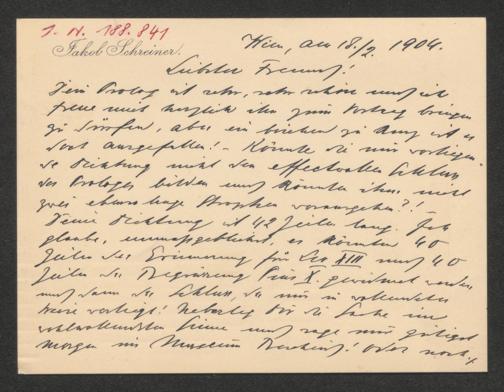 J. N. 188.841
Jakob Schreiner.
Wien, am 18./2. 1904.
Liebster Freund!
Dein Prolog ist sehr, sehr schön und ich
freue mich herzlich ihn zum Vortrag bringen
zu dürfen, aber ein bischen zu kurz ist er
dort ausgefallen! – Könnte die mir vorliegen-
de Dichtung nicht den effectvollen Schluss
des Prologes bilden und könnten ihm nicht
zwei ebenso lange Strophen vorangehen?!
Deine Dichtung ist 42 Zeilen lang. Ich
glaube, unmassgeblichst, es könnten 40
Zeilen der Erinnerung für Leo XIII und 40
Zeilen der Begrüssung Pius X. gewidmet werden
und dann der Schluss, der mir in vollendeter
Weise vorliegt! Überleg Dir die Sache im
wohlwollendsten Sinne und sage mir gütigst
morgen im Museum Bescheid! Oder noch